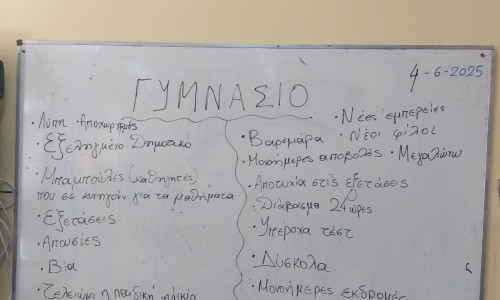 4-6-2025
ΓΥΜΝΑΣΙΟ
· Λύπη · Αποχωρισμός
· Εξελιγμένο Δημοτικό
· Μπαμπούλες (καθηγητές)
που σε κυνηγούν για τα μαθήματα
· Εξετάσεις
· Απουσίες
· Βία
· Τελειώνει η παιδική ηλικία
· Νέες εμπειρίες
· Βαρεμάρα · Νέοι φίλοι
· Μονοήμερες αποβολές · Μεγαλώνω
· Αποτυχία στις εξετάσεις
· Διάβασμα 24 ώρες
· Υπέροχα τέστ
· Δύσκολα
· Μονοήμερες εκδρομές